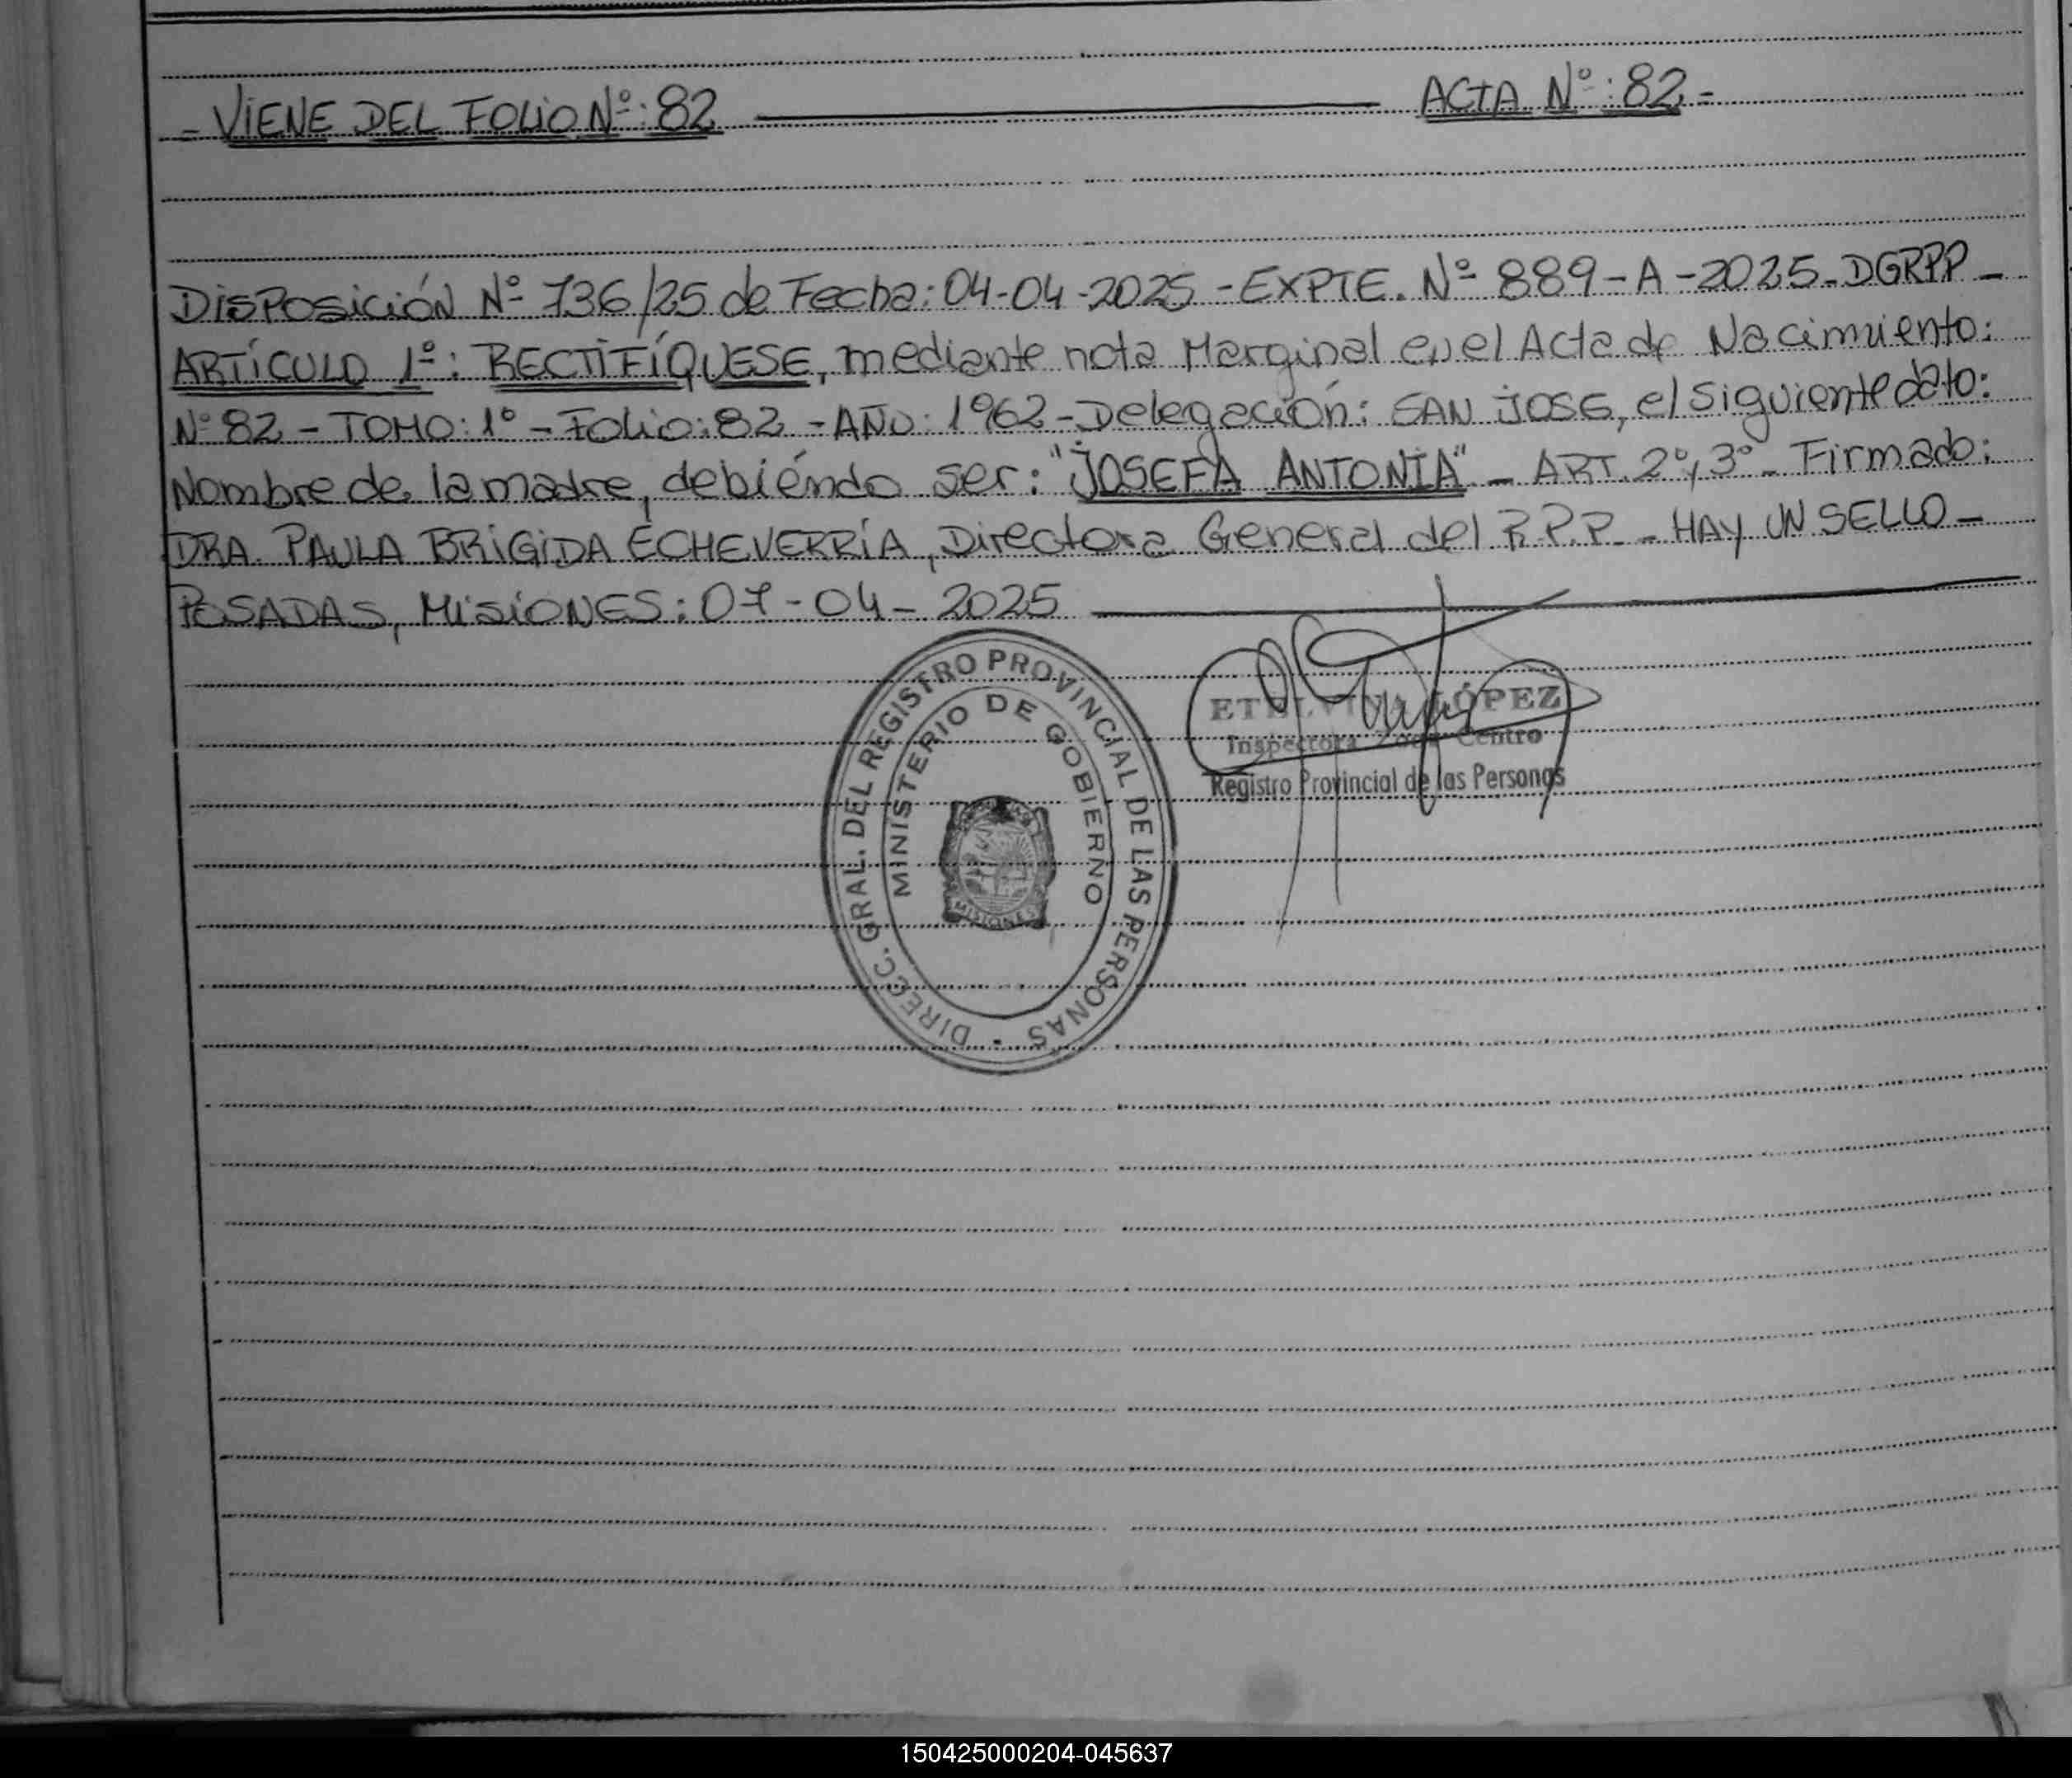 - VIENE DEL FOLIO Nº: 82 ACTA Nº: 82 -
DISPOSICIÓN Nº 736/25 de Fecha: 04-04-2025 - EXPTE. Nº 889-A-2025-DGRPP -
ARTÍCULO 1º: RECTIFÍQUESE, mediante nota Marginal en el Acta de Nacimiento:
Nº 82 - TOMO: 1º - Folio: 82 - AÑO: 1962 - Delegación: SAN JOSE, el siguiente dato:
Nombre de la madre, debiéndo ser: "JOSEFA ANTONIA" - ART. 2º y 3º - Firmado:
DRA. PAULA BRÍGIDA ECHEVERRÍA, Directora General del R.P.P. - HAY UN SELLO -
POSADAS, MISIONES: 07-04-2025
DIRECC. GRAL. DEL REGISTRO PROVINCIAL DE LAS PERSONAS -
MINISTERIO DE GOBIERNO
MISIONES
LÓPEZ
Inspectora Zona Centro
Registro Provincial de las Personas
150425000204-045637